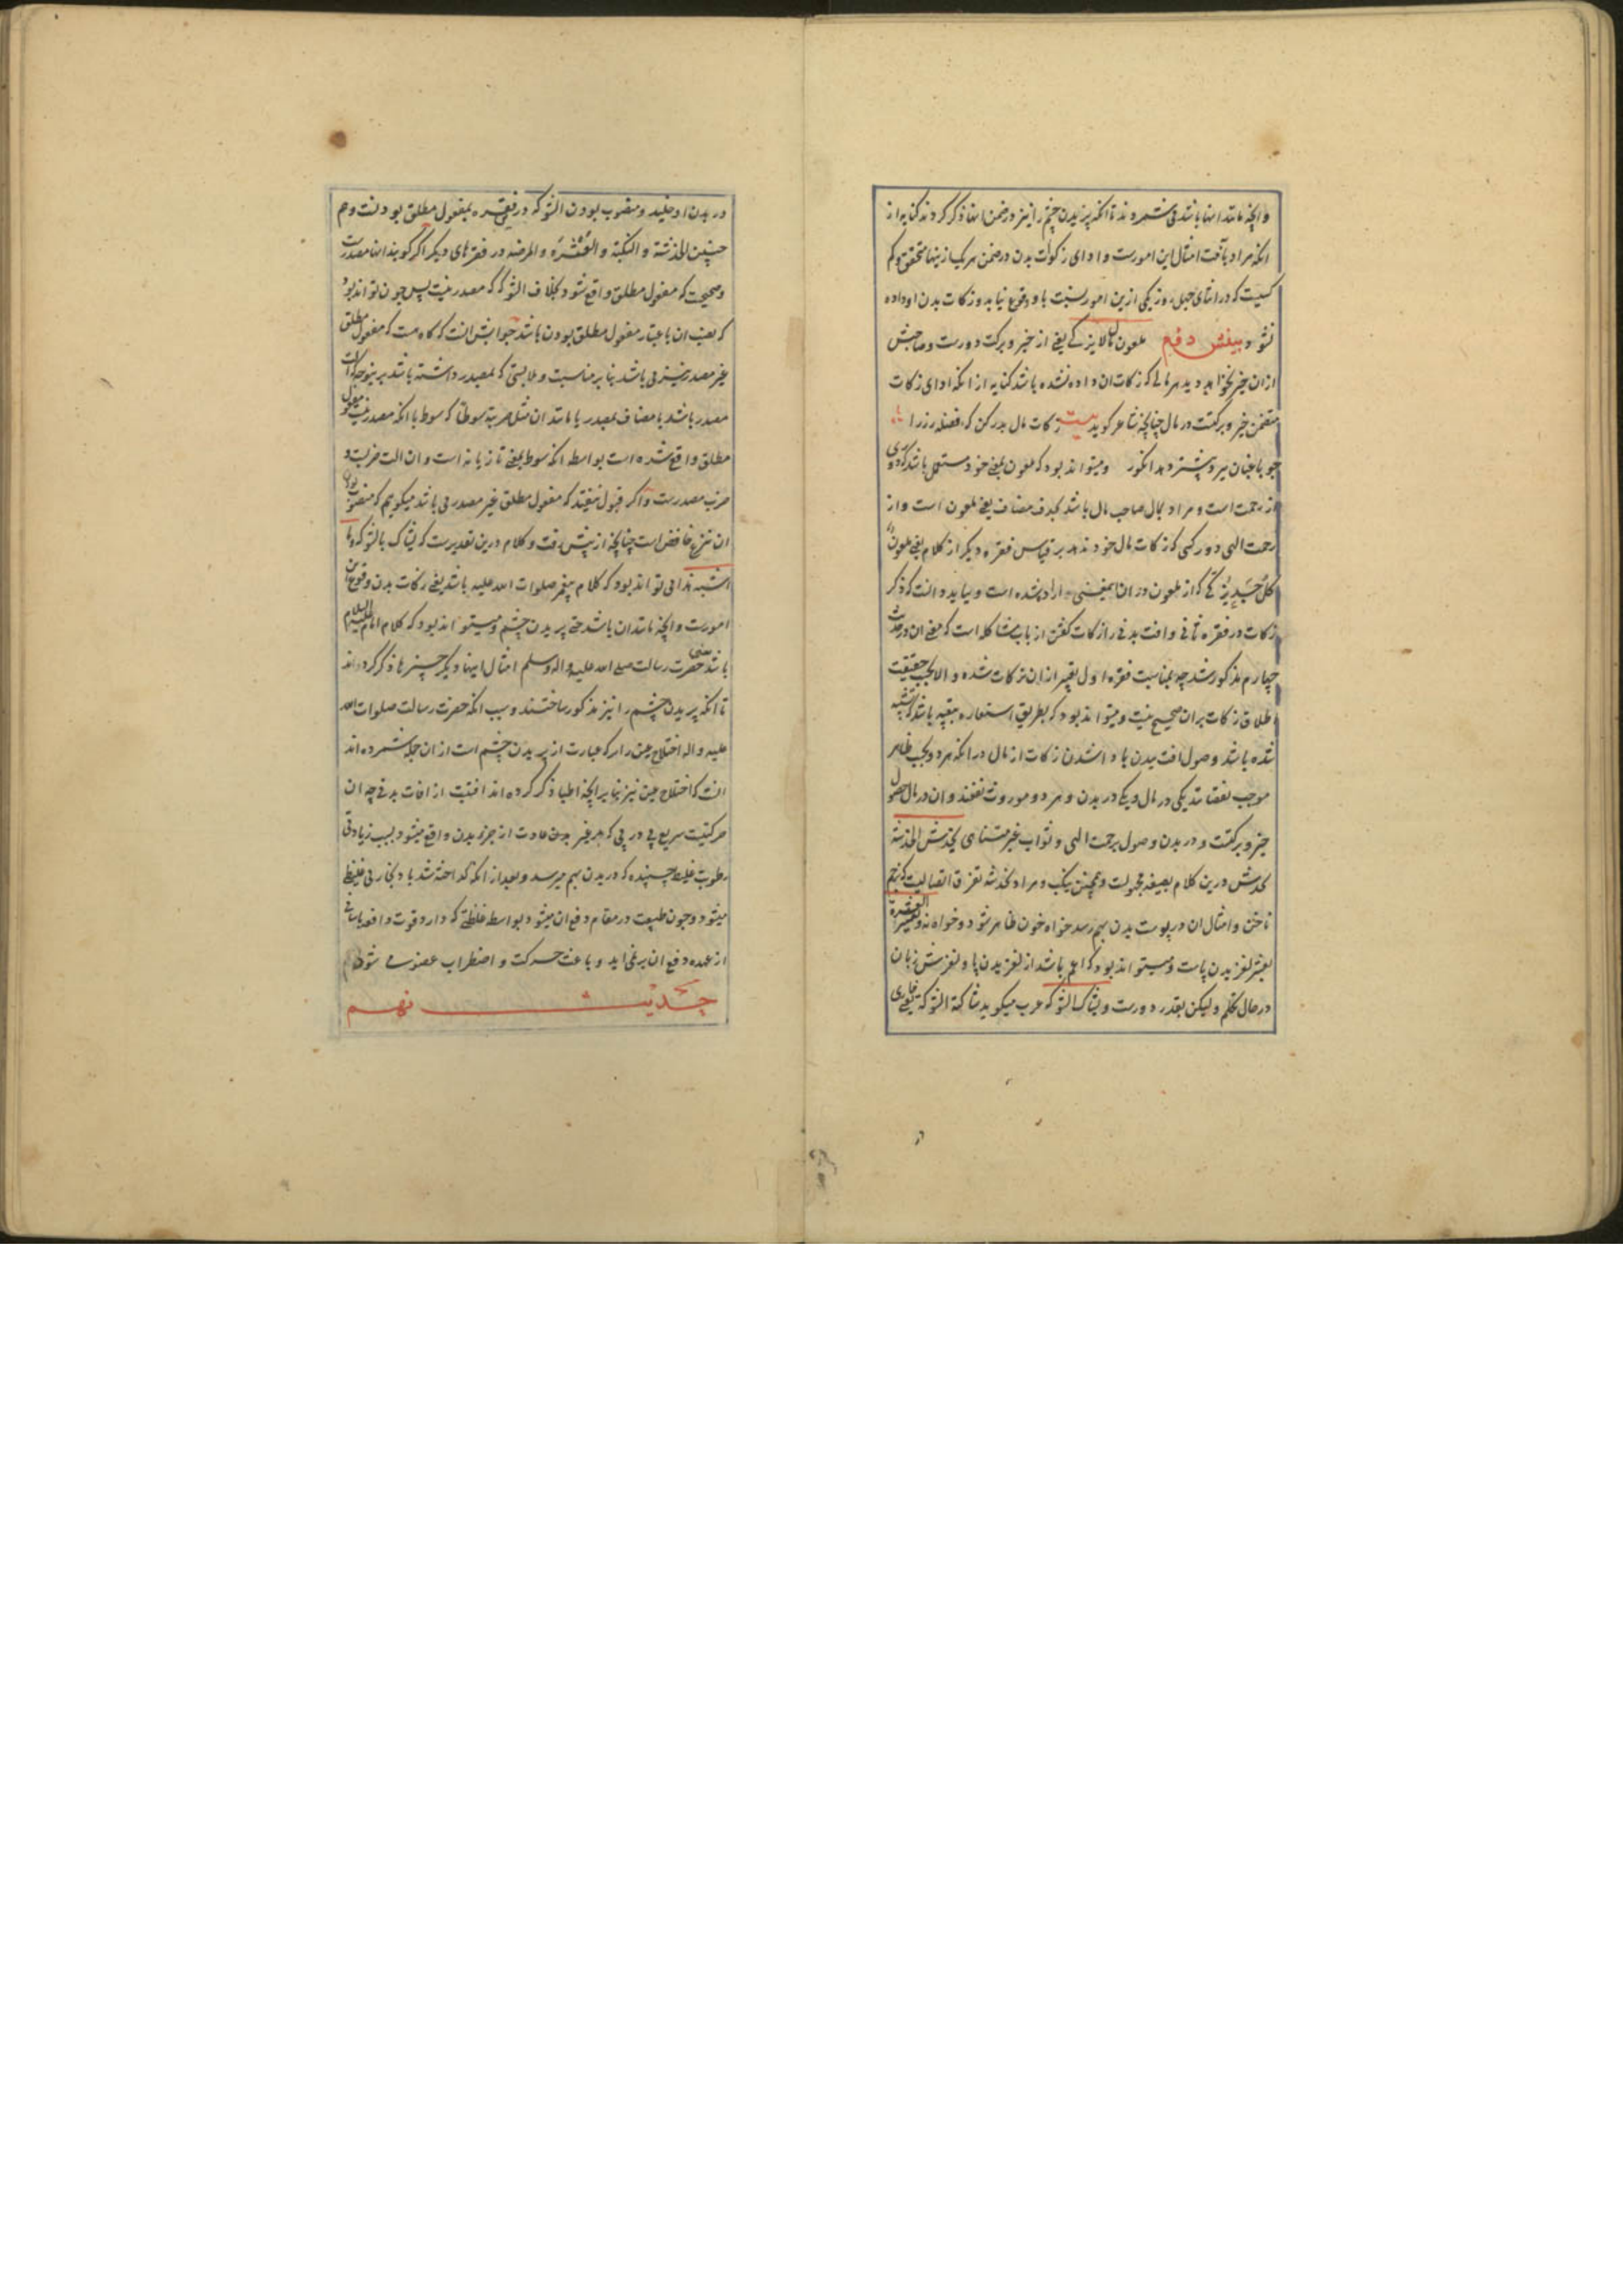 وانچه مانند اینها باشد می شمردند تا انکه پریدن چشم را نیز در ضمن اینها ذکر کردند کنایه از
انکه مراد بآفت امثال این امورست و ادای زکوة بدن در ضمن هریک ازینها متحقق و کم
کسیست که در اثنای چهل روز یکی ازین امور نسبت باو وقوع نیابد و زکات بدن او داده
نشود ملعون مال لا یزکی یعنی از خیر و برکت دورست و صاحبش
ازان خیر نخواهد دید هر مالی که زکات ان داده نشده باشد کنایه از انکه ادای زکات
متضمن خیر و برکتست در مال چنانچه شاعر کوید بیت زکات مال بدر کن که فضله رز را
چو باغبان ببرد بیشتر دهد انکور و میتواند بود که ملعون بمعنی خود مستعمل باشد که دوری
از رحمت است و مراد بمال صاحب مال باشد بحذف مضاف یعنی ملعون است و از
رحمت الهی دور کسی که زکات مال خود ندهد بر قیاس فقره دیکر از کلام یعنی ملعون
کل جسد لا یزکی که از ملعون در ان اراده شده است و بباید دانست که ذکر
زکات در فقره ثانی و افت بدنی را زکات کفتن از باب مشاکله است که معنی ان در حدیث
چهارم مذکور شد چه بمناسبت فقره اول تعبیر ازان بزکات شده و الا بحسب حقیقت
اطلاق زکات بران صحیح نیست و میتواند بود که بطریق استعاره تبعیه باشد که تشبیه
شده باشد وصول افت ببدن با داشدن زکات از مال در انکه هر دو بحسب ظاهر
موجب نقصانند یکی در مال و یکی در بدن و هر دو موروث نفعند و ان در مال حصول
خیر و برکتست و در بدن وصول برحمت الهی و ثواب غیر متناهی یخدش الخدشة
یخدش درین کلام بصیغه مجهولست و همچنین ینکب و مراد بخدشه تفرق اتصالیست که بزخم
ناخن و امثال ان در پوست بدن بهم رسد خواه خون ظاهر شود و خواه نه و یعثر العثرة
یعثر لغزیدن پاست و میتواند بود که اعم باشد از لغزیدن پا و لغزش زبان
در حال تکلم و لیکن بقدر دورست و یشاک الشوکة عرب میکوید شاکته الشوکة یعنی خاری
در بدن او خلید و منصوب بودن الشوکه درین فقره بمفعول مطلق بودنست و هم
چنین الخدشة و النکبة و العثرة و المرضه در فقرهای دیکر اکر کویند اینها مصدرست
و صحیحست که مفعول مطلق واقع شود بخلاف الشوکه که مصدر نیست پس چون تواند بود
که نصب ان باعتبار مفعول مطلق بودن باشد جوابش انست که کاه هست که مفعول مطلق
غیر مصدر نیز می باشد بنابر مناسبت و ملابستی که بمصدر داشته باشد
مصدر باشد یا مضاف بمصدر یا مانند ان مثل ضربته سوطا که سوط با انکه مصدر نیست مفعول
مطلق واقع شده است بواسطه انکه سوط بمعنی تازیانه است و ان الت ضربست و
ضرب مصدرست و اکر قبول نیفتد که مفعول مطلق غیر مصدر می باشد میکویم که منصوب بودن
ان بنزع خافض است چنانچه از پیش رفت و کلام درین تقدیرست که یشاک بالشوکة و ما
اشبه هذا می تواند بود که کلام پیغمبر صلوات الله علیه باشد یعنی زکات بدن وقوع این
امورست و انچه مانند ان باشد حتی پریدن چشم و میتواند بود که کلام امام علیه السلام
باشد یعنی حضرت رسالت صلی الله علیه و اله و سلم امثال اینها دیکر چیزها ذکر کردند
تا انکه پریدن چشم را نیز مذکور ساختند و سبب انکه حضرت رسالت صلوات الله
علیه و اله اختلاج عین را که عبارت از پریدن چشم است ازان جمله شمرده اند
انست که اختلاج عین نیز بنابر انچه اطبا ذکر کرده اند افتیست از افات بدنی چه ان
حرکتیست سریع پی در پی که بر غیر عادت از جزو بدن واقع میشود بسبب زیادتی
رطوبت غلیظ چسپنده که در بدن بهم میرسد و بعد از انکه کداخته شد باد بخاری غلیظ
میشود و چون طبیعت در مقام دفع ان میشود بواسطه غلظتی که دارد قوت دافعه باسانی
از عهده دفع ان بر نمی اید و باعث حرکت و اضطراب عضو می شود
حدیث نهم